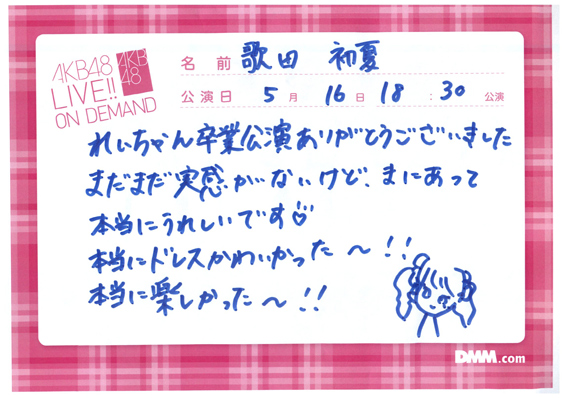 AKB48
LIVE!!
ON DEMAND
AKB
48
名前 歌田 初夏
公演日 5月 16日 18:30 公演
れいちゃん卒業公演ありがとうございました
まだまだ実感がないけど、まにあって
本当にうれしいです♡
本当にドレスかわいかった〜!!
本当に楽しかった〜!!
DMM.com